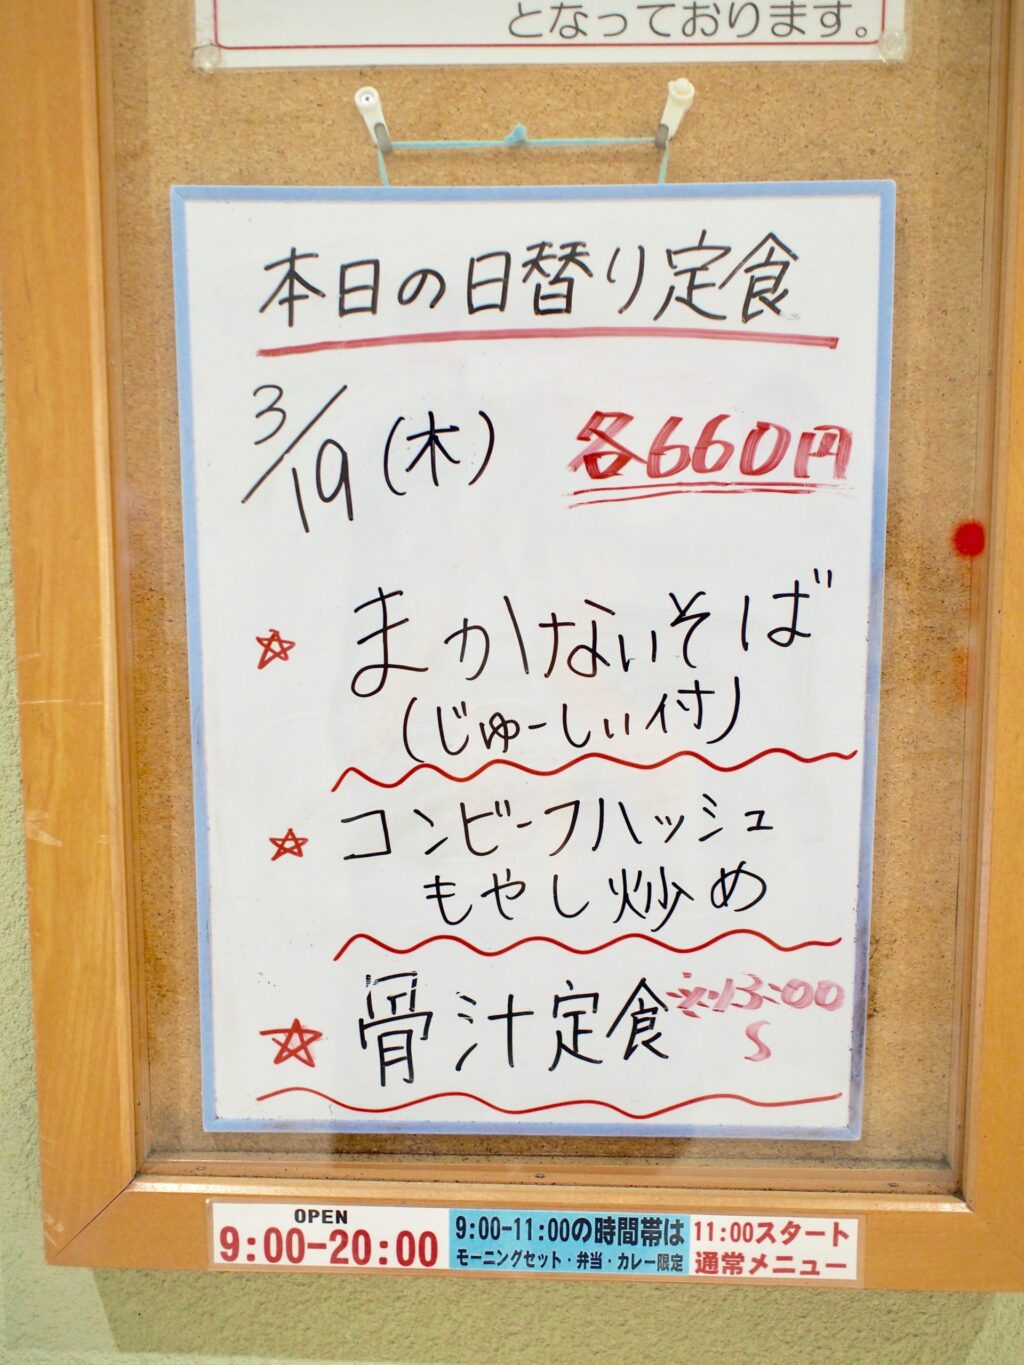 となっております。
本日の日替り定食
3/19(木) 各660円
☆ まかないそば
(じゅーしぃ付)
☆ コンビーフハッシュ
もやし炒め
☆ 骨汁定食 ※13:00
〜
OPEN
9:00-20:00
9:00-11:00の時間帯は
モーニングセット・弁当・カレー限定
11:00スタート
通常メニュー